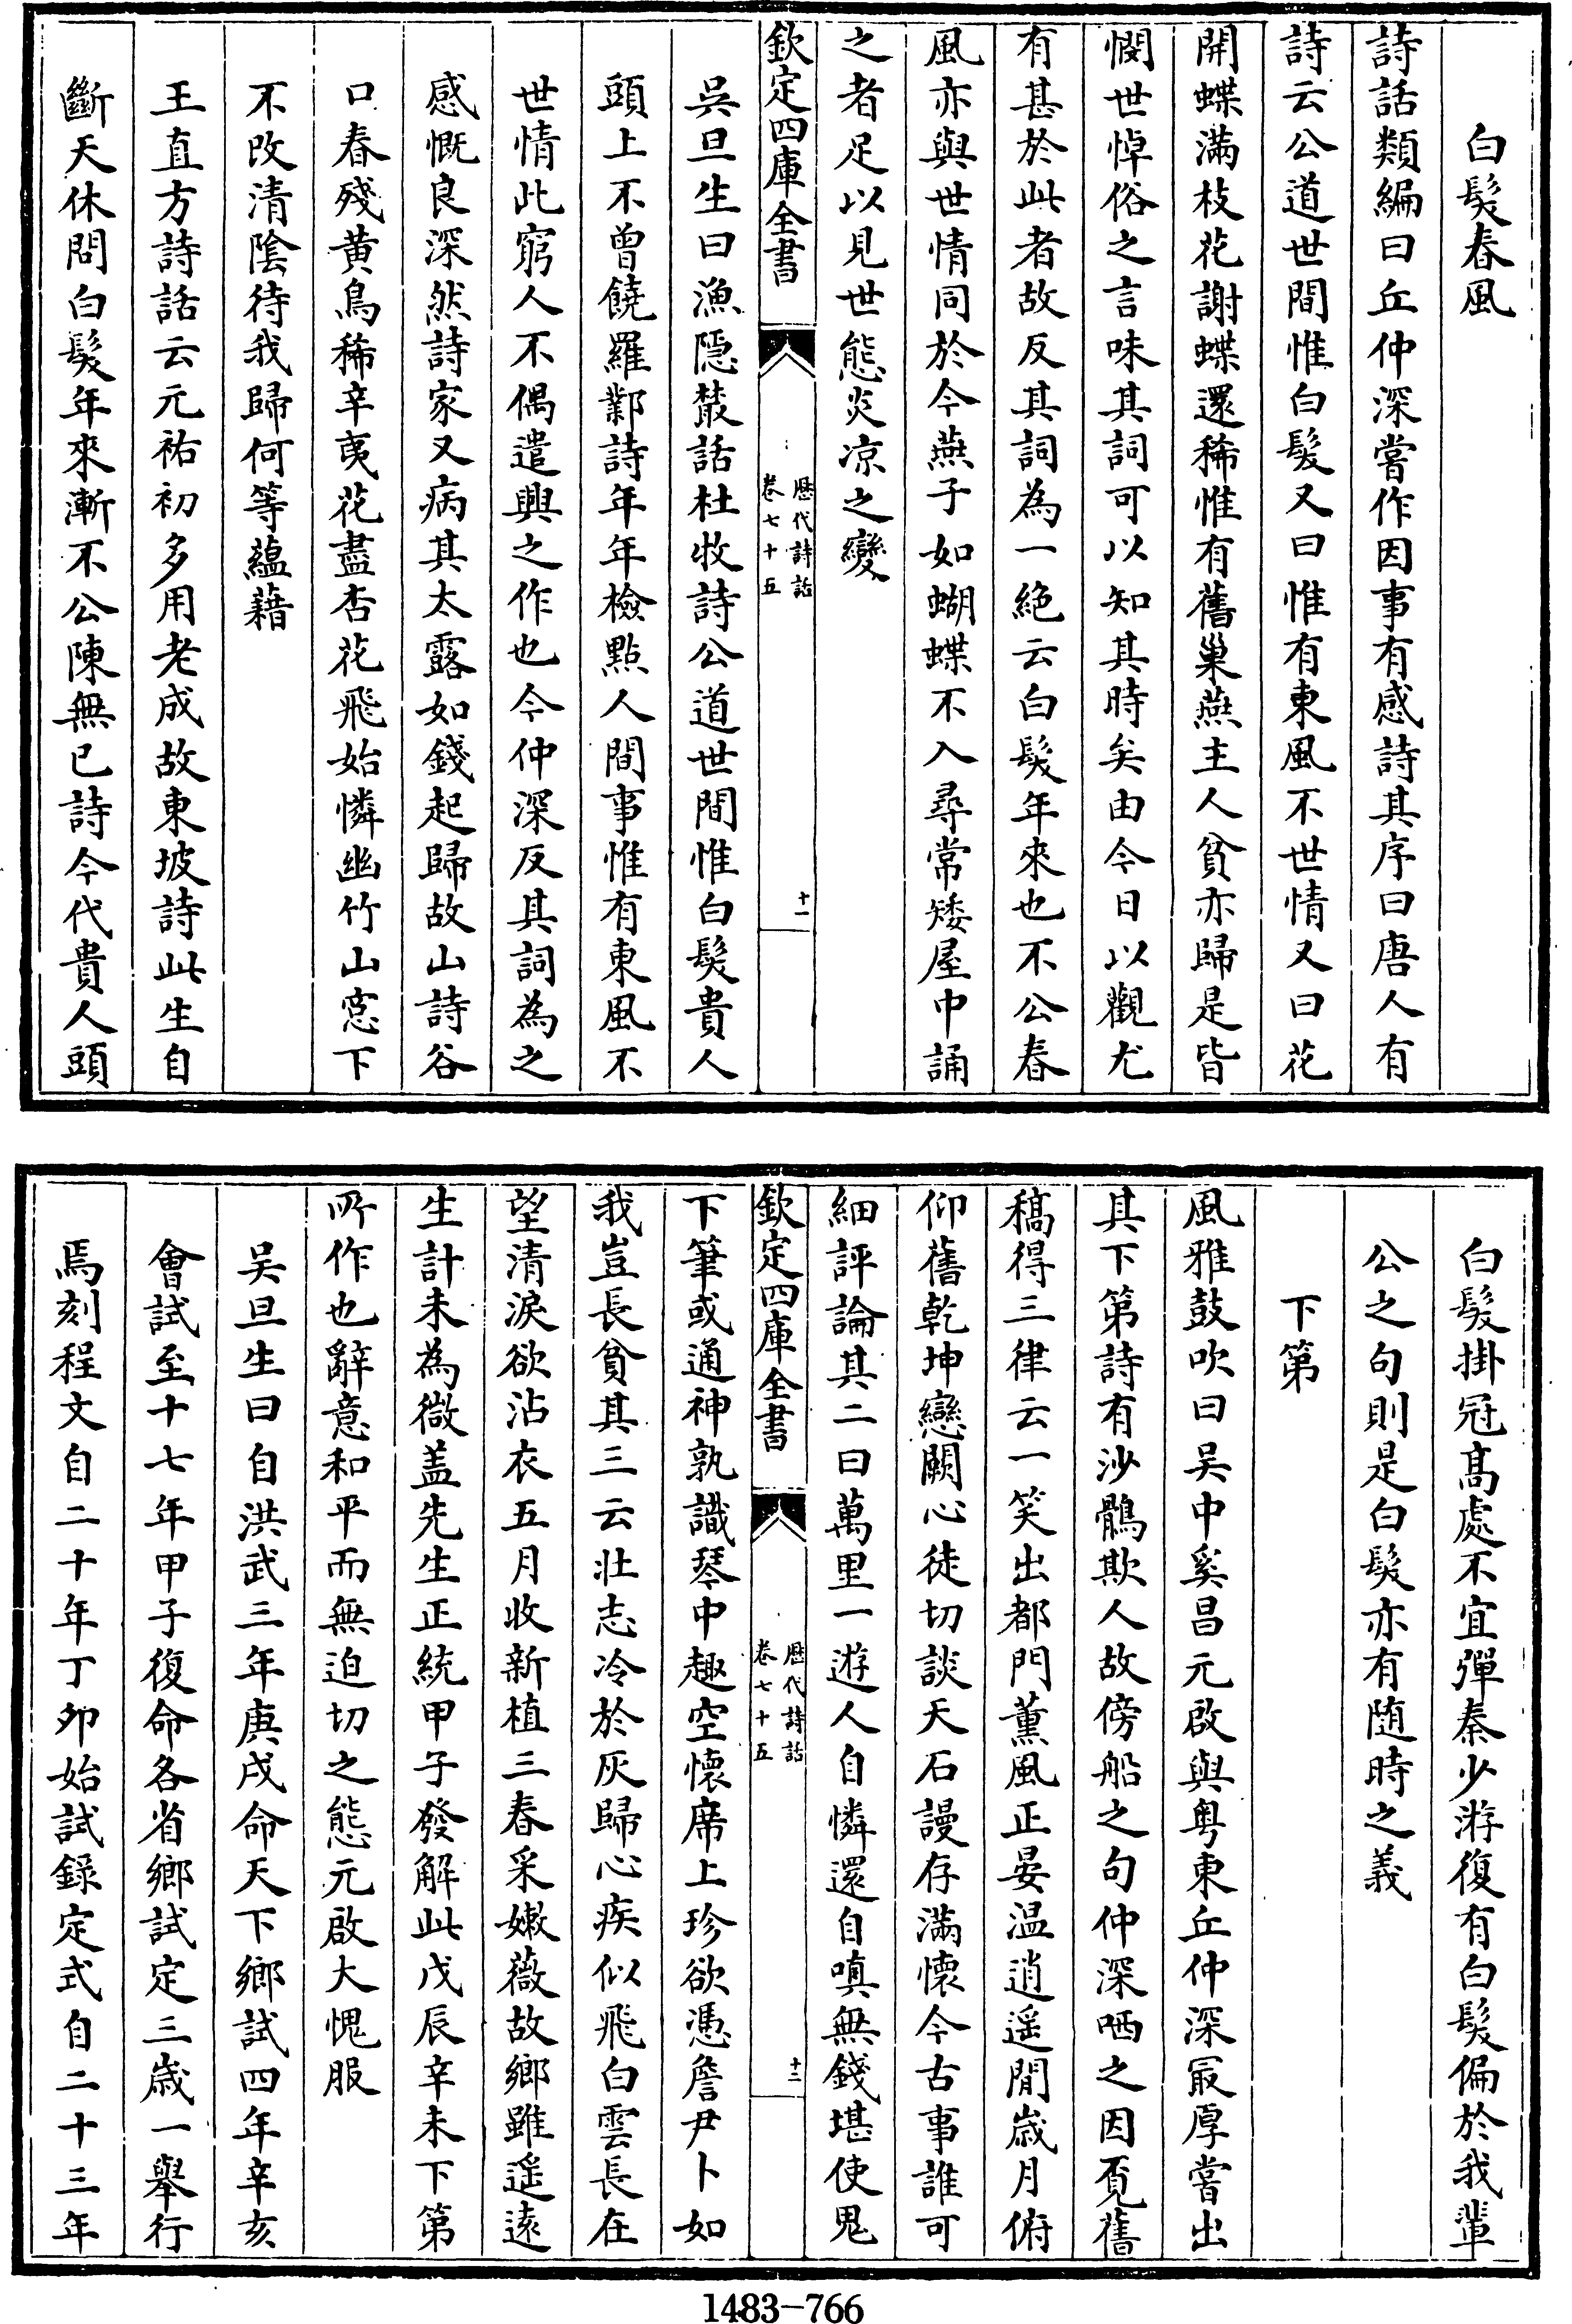 白髮春風
詩話類編曰丘仲深嘗作因事有感詩其序曰唐人有
詩云公道世間惟白髮又曰惟有東風不世情又曰花
開蝶滿枝花謝蝶還稀惟有舊巢燕主人貧亦歸是皆
憫世悼俗之言味其詞可以知其時矣由今日以觀尤
有甚於此者故反其詞為一絶云白髮年來也不公春
風亦與世情同於今燕子如蝴蝶不入尋常矮屋中誦
之者足以見世態炎凉之變
欽定四庫全書
歴代詩話
卷七十五
十一
吳旦生曰漁隱叢話杜牧詩公道世間惟白髮貴人
頭上不曾饒羅鄴詩年年檢點人間事惟有東風不
世情此窮人不偶遣興之作也今仲深反其詞為之
感慨良深然詩家又病其太露如錢起歸故山詩谷
口春殘黄鳥稀辛夷花盡杏花飛始憐幽竹山窓下
不改清隂待我歸何等蘊藉
王直方詩話云元祐初多用老成故東坡詩此生自
斷天休問白髮年來漸不公陳無已詩今代貴人頭
白髮掛冠髙處不宜彈秦少游復有白髮偏於我輩
公之句則是白髮亦有随時之義
下第
風雅鼓吹曰吳中奚昌元啟與粤東丘仲深冣厚嘗出
其下第詩有沙鶻欺人故傍船之句仲深哂之因覓舊
稿得三律云一笑出都門薰風正晏温逍遥閒歳月俯
仰舊乾坤戀闕心徒切談天石謾存滿懷今古事誰可
細評論其二曰萬里一遊人自憐還自嗔無錢堪使鬼
欽定四庫全書
歴代詩話
卷七十五
十二
下筆或通神孰識琴中趣空懷席上珍欲憑詹尹卜如
我豈長貧其三云壯志冷於灰歸心疾似飛白雲長在
望清淚欲沾衣五月收新植三春采嫩薇故鄉雖遥遠
生計未為微盖先生正統甲子發解此戊辰辛未下第
所作也辭意和平而無迫切之態元啟大愧服
吳旦生曰自洪武三年庚戌命天下鄉試四年辛亥
會試至十七年甲子復命各省鄉試定三歳一舉行
焉刻程文自二十年丁卯始試錄定式自二十三年
1483-766